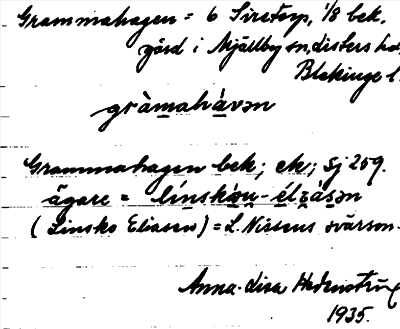 Grammahagen = 6 Siretorp, 1/8 bek.
gård i Mjällby sn, Listers hd,
Blekinge l.
gràmahávən
Grammahagen bek; ek; sj 259.
ägare = línskóu-élzásən
(Linsko Eliasen) = L. Nissens svärson.
Anna-Lisa
1935.